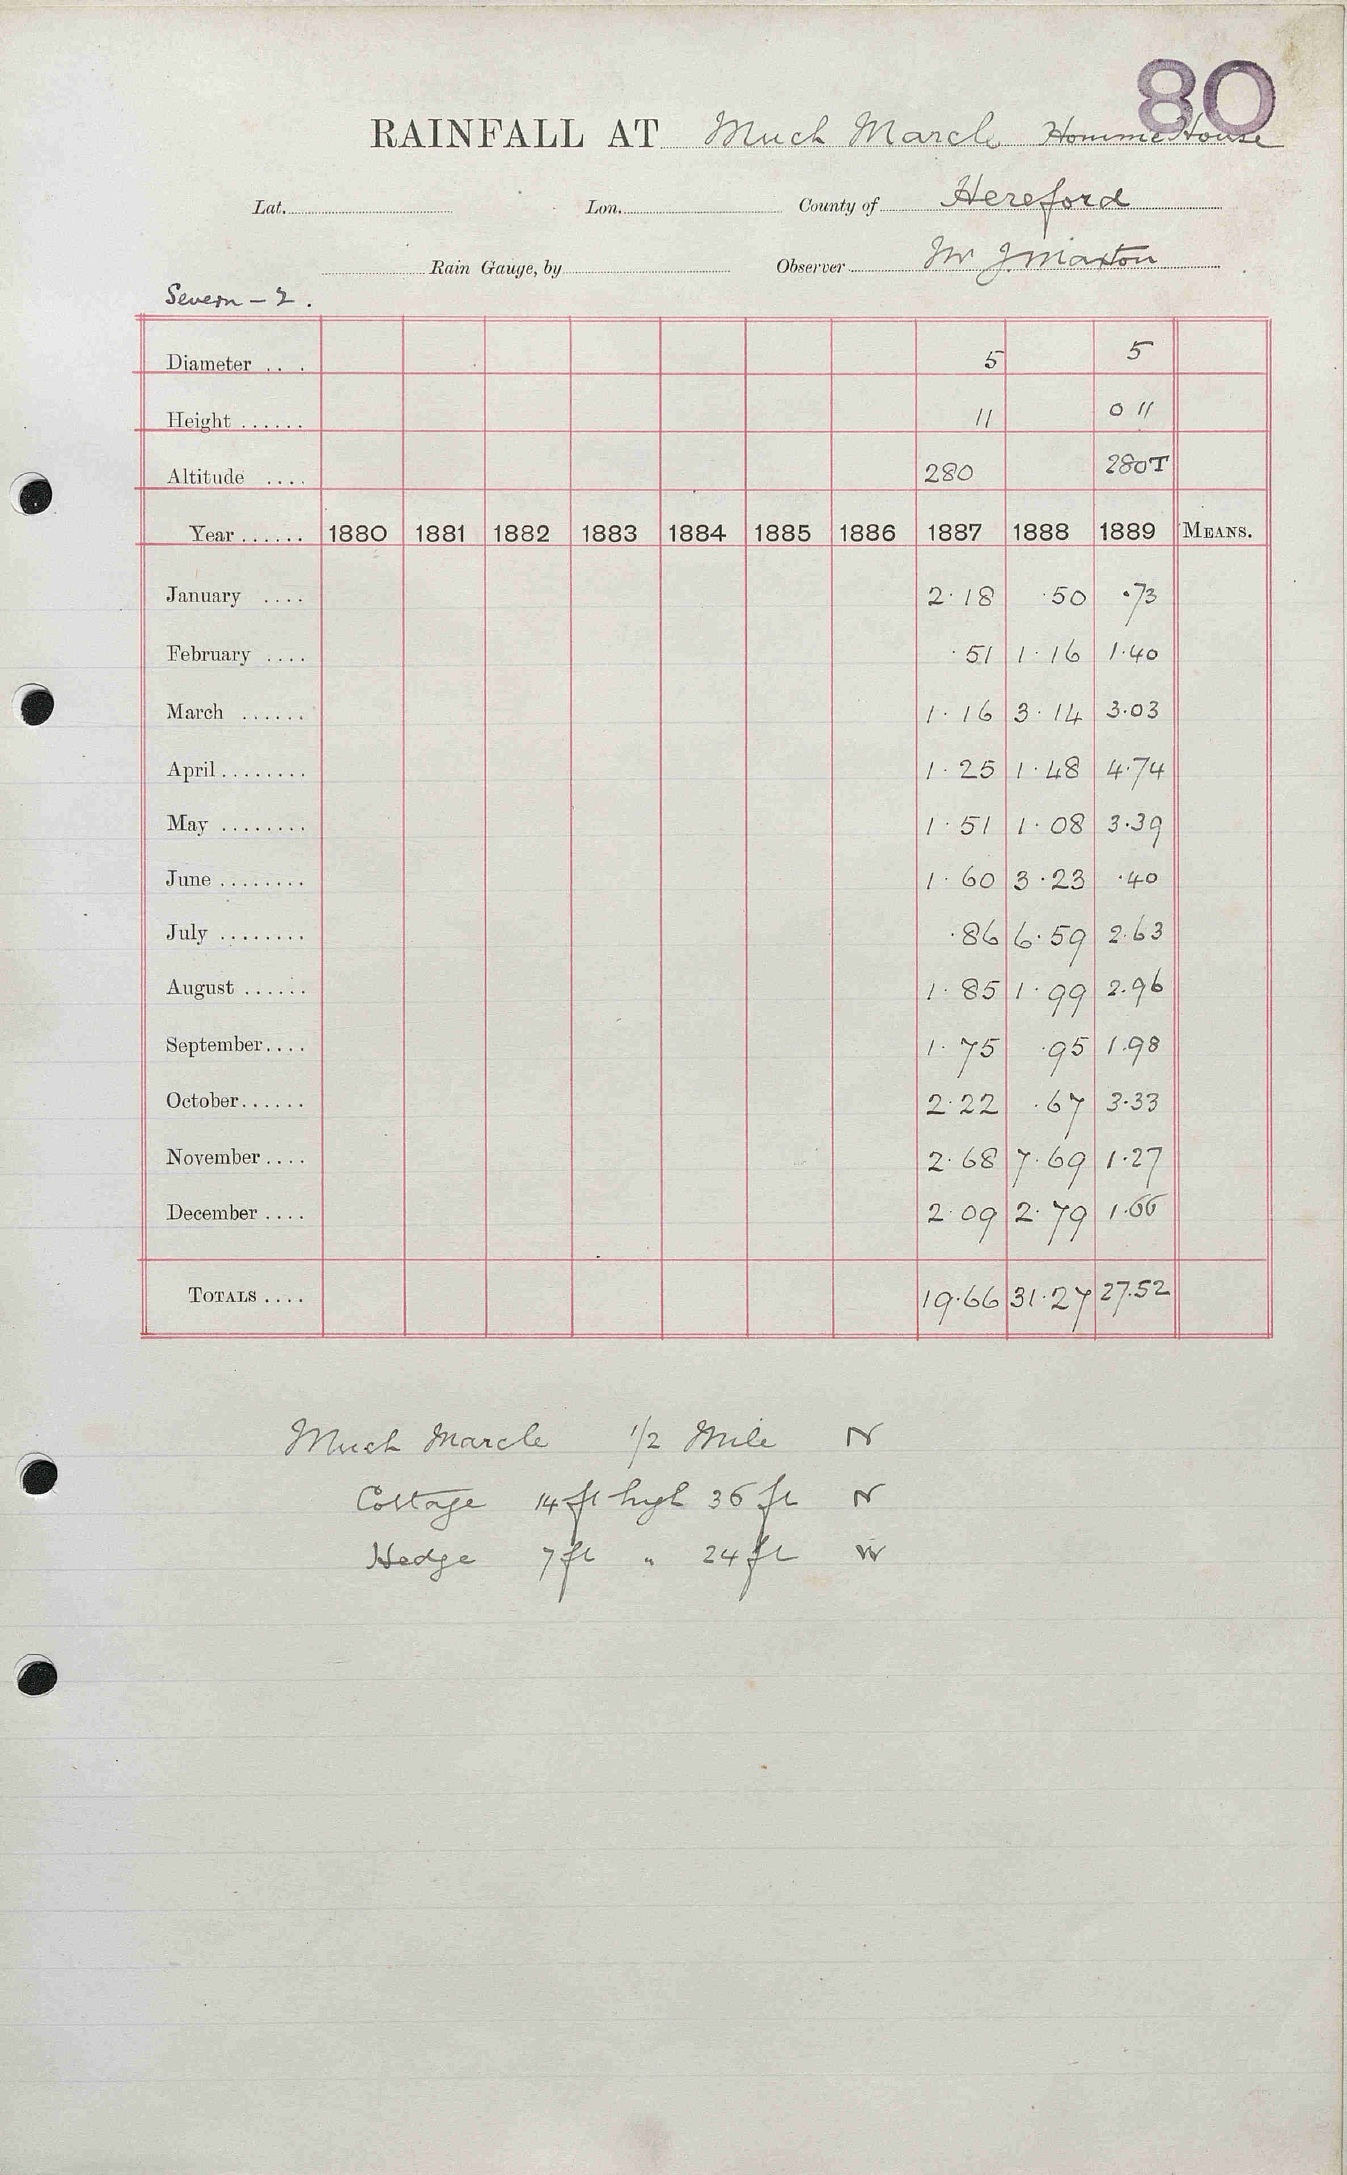 80
RAINFALL AT Much Marcle Homme House
Lat. Lon. County of Hereford
Rain Gauge, by Observer Mr J. Maxton
Severn - 2.
Diameter .. . 5 5
Height ...... 11 0 11
Altitude .... 280 280T
Year ...... 1880 1881 1882 1883 1884 1885 1886 1887 1888 1889 MEANS.
January .... 2.18 .50 .73
February .... .51 1.16 1.40
March ...... 1.16 3.14 3.03
April ........ 1.25 1.48 4.74
May ........ 1.51 1.08 3.39
June ........ 1.60 3.23 .40
July ........ .86 6.59 2.63
August ...... 1.85 1.99 2.96
September .... 1.75 .95 1.98
October ...... 2.22 .67 3.33
November .... 2.68 7.69 1.27
December .... 2.09 2.79 1.66
TOTALS .... 19.66 31.27 27.52
Much Marcle 1/2 Mile N
Cottage 14 ft high 36 ft N
Hedge 7 ft " 24 ft W